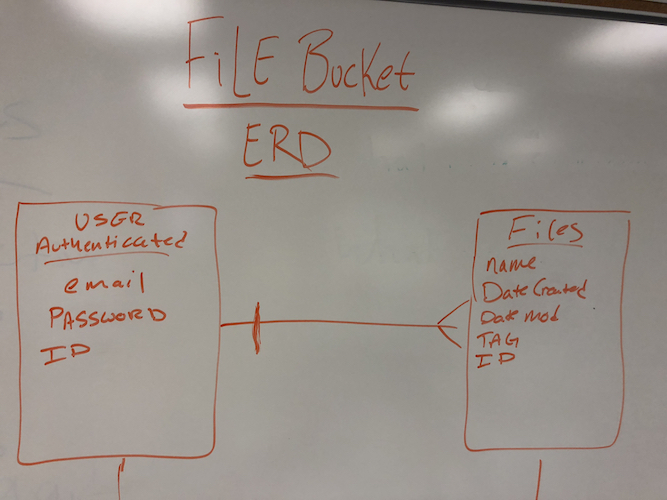 FiLE Bucket
ERD
USER
Authenticated
email
PASSWORD
ID
Files
name
Date Created
Date mod
TAG
ID